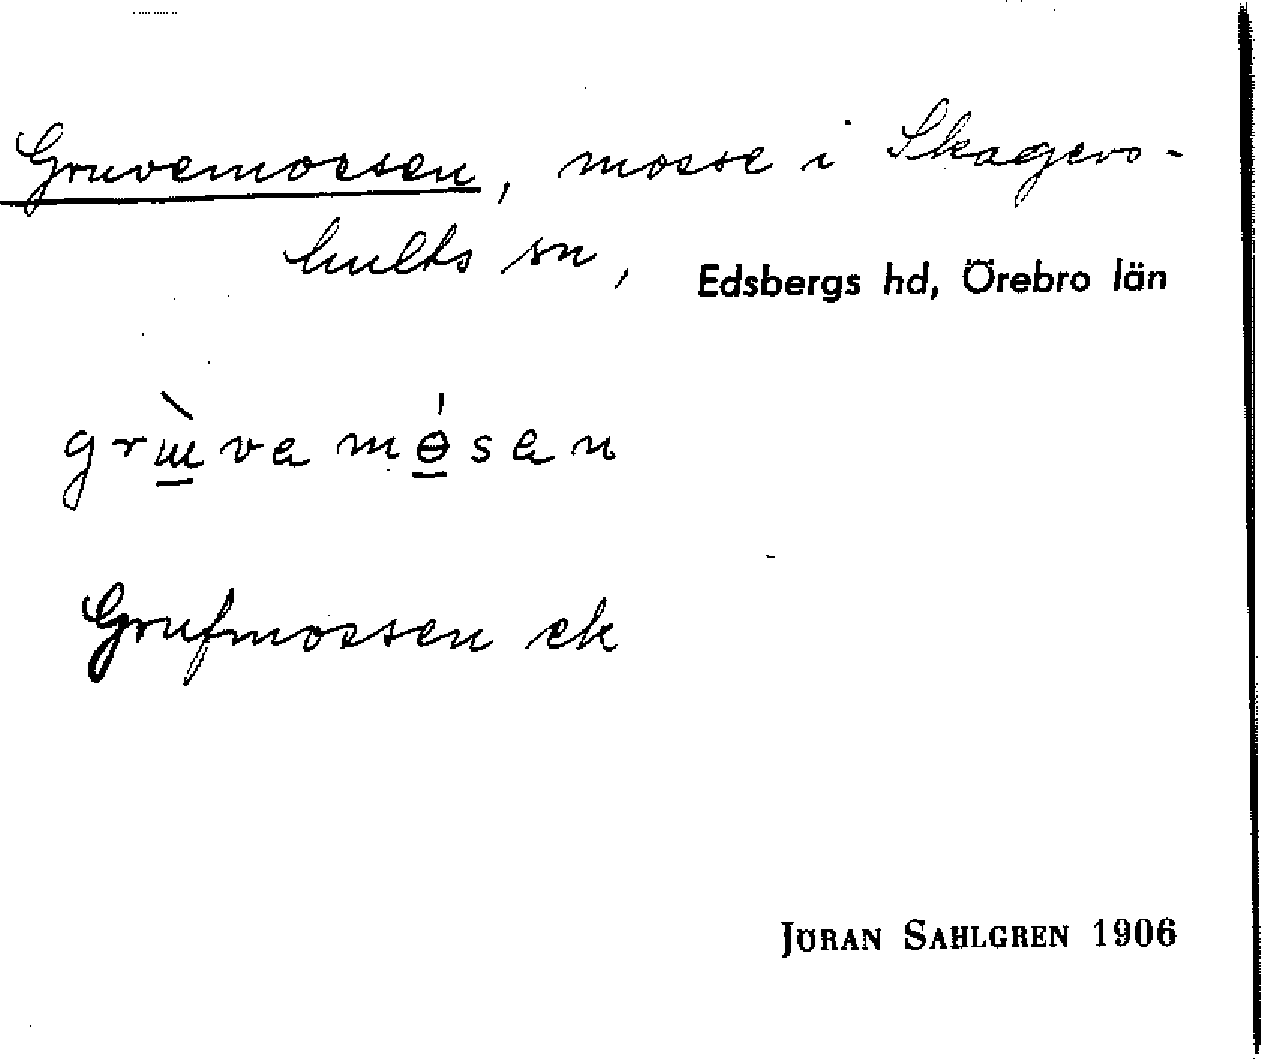 Gruvemossen, mosse i Skagers-
hults sn, Edsbergs hd, Örebro län
grɯ̱̀va mɵ̱́san
Grufmossen ek
JÖRAN SAHLGREN 1906